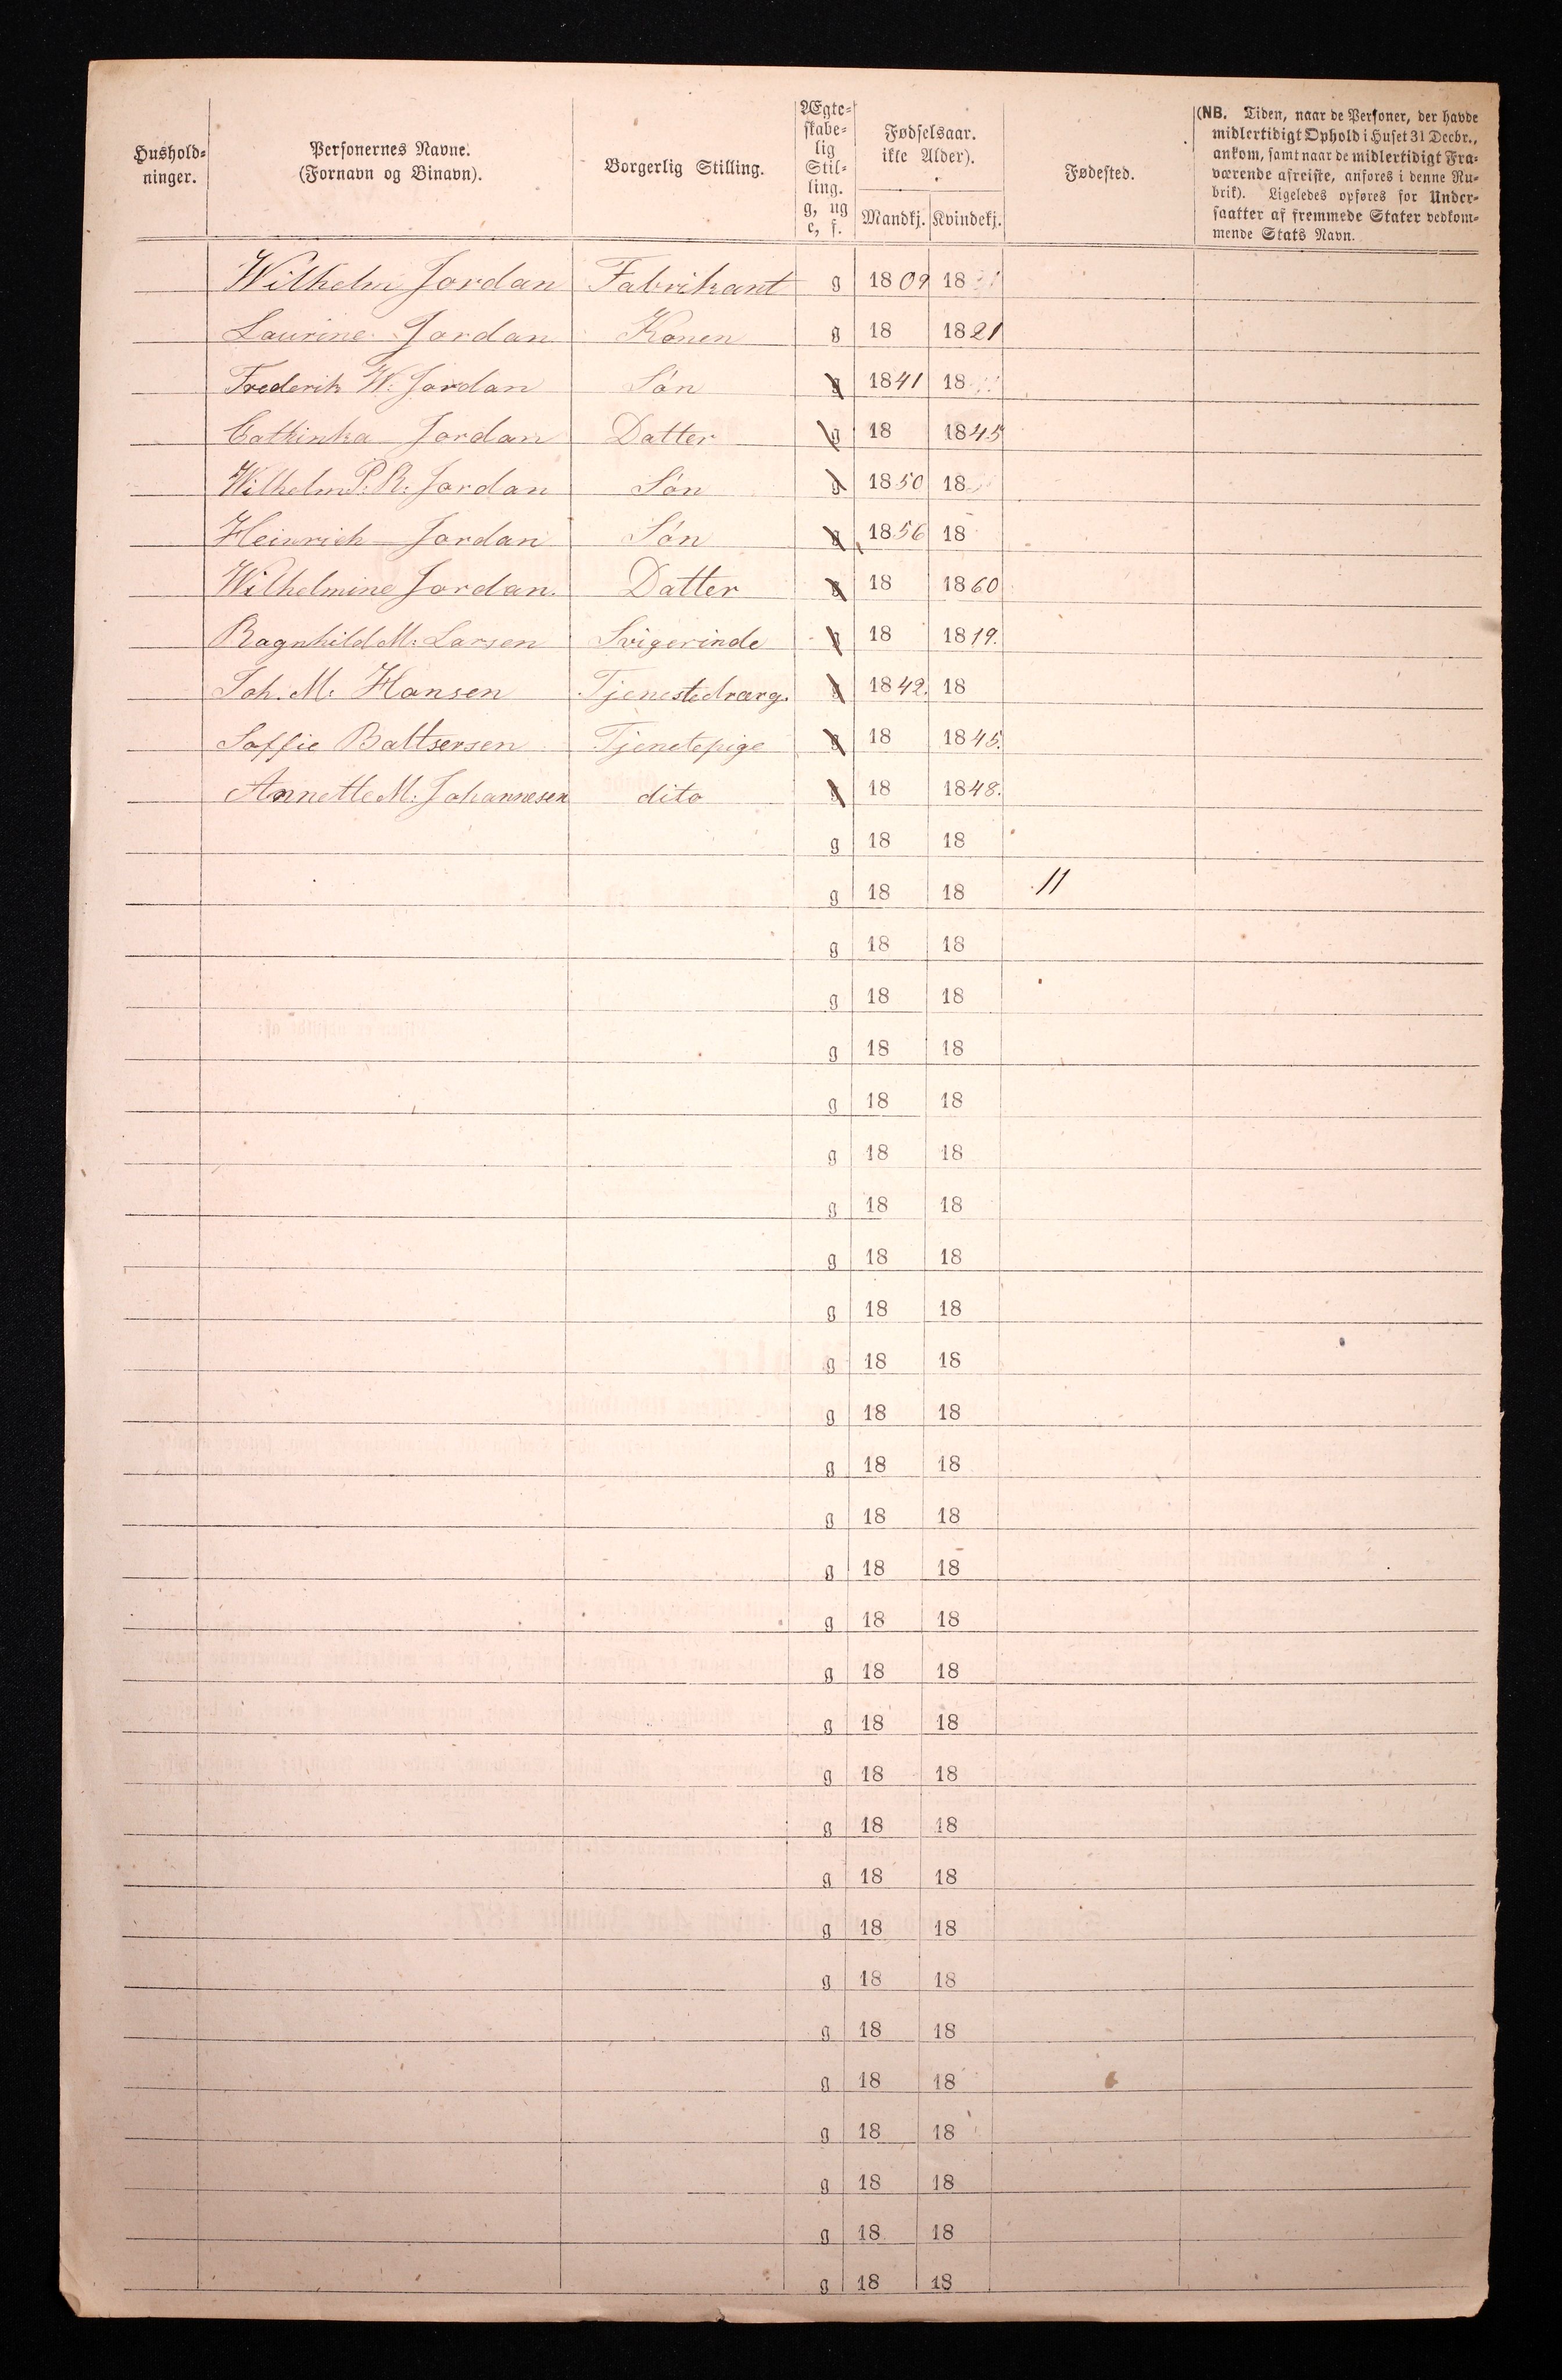 Hushold-
ninger.
Personernes Navne.
(Fornavn og Binavn).
Borgerlig Stilling.
Ægte-
skabe-
lig
Stil-
ling.
g, ug
e, f.
Fødselsaar.
ikke Alder).
Mandkj. Kvindekj.
Fødested.
(NB. Tiden, naar de Personer, der havde
midlertidigt Ophold i Huset 31 Decbr.,
ankom, samt naar de midlertidigt Fra-
værende afreiste, anføres i denne Ru-
brik). Ligeledes opføres for Under-
saatter af fremmede Stater vedkom-
mende Stats Navn.
Wilhelm Jordan Fabrikant g 1809 18
Laurine Jordan Konen g 18 1821
Frederik W. Jordan Søn g 1841 18
Cathinka Jordan Datter g 18 1845
Wilhelm P. R. Jordan Søn g 1850 18
Heinrich Jordan Søn g 1856 18
Wilhelmine Jordan. Datter g 18 1860
Ragnhild M. Larsen Svigerinde g 18 1819.
Joh. M. Hansen Tjenestedræng. g 1842. 18
Soffie Baltsersen Tjenetepige g 18 1845.
Annette M. Johannesen dito g 18 1848.
g 18 18
g 18 18 11
g 18 18
g 18 18
g 18 18
g 18 18
g 18 18
g 18 18
g 18 18
g 18 18
g 18 18
g 18 18
g 18 18
g 18 18
g 18 18
g 18 18
g 18 18
g 18 18
g 18 18
g 18 18
g 18 18
g 18 18
g 18 18
g 18 18
g 18 18
g 18 18
g 18 18
g 18 18
g 18 18